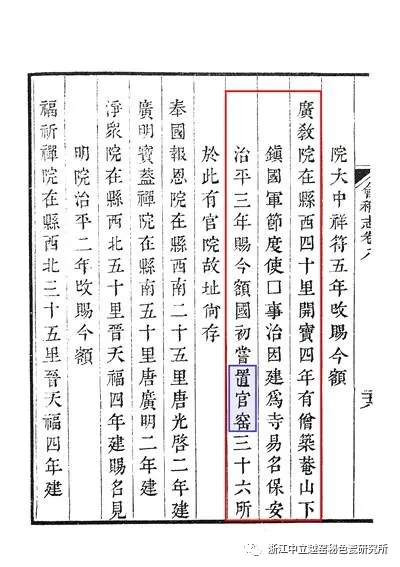 會稽志卷八
院大中祥符五年改賜今額
廣教院在縣西四十里開寶四年有僧築菴山下
鎮國軍節度使口事治因建爲寺易名保安
治平三年賜今額國初嘗置官窑三十六所
於此有官院故址尚存
奉國報恩院在縣西南二十五里唐光啓二年建
廣明寶蓋禪院在縣南五十里唐廣明二年建
淨衆院在縣西北五十里晉天福四年建賜名見
明院治平二年改賜今額
福祈禪院在縣西北三十五里晉天福四年建
浙江中立越窑秘色瓷研究所